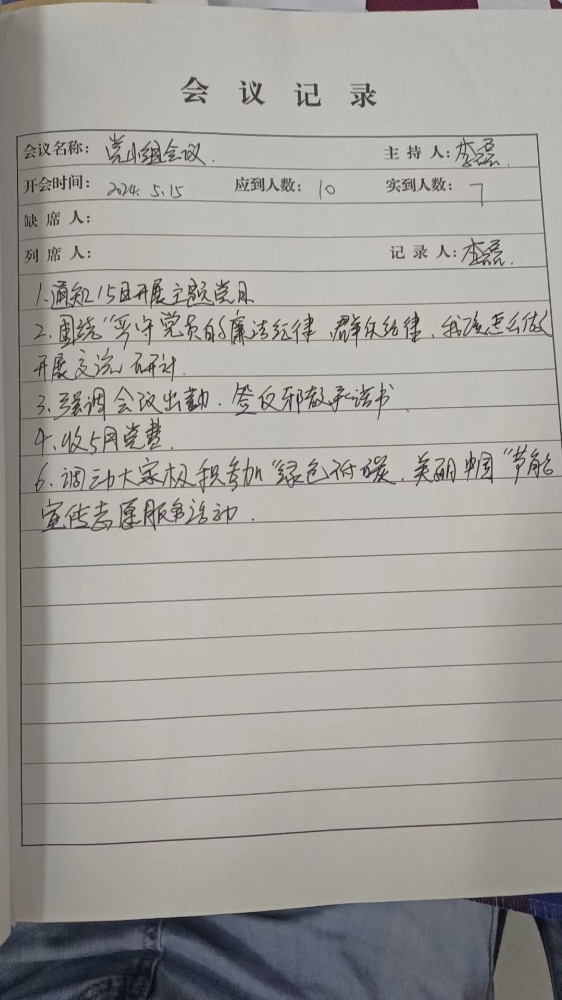 会议记录
会议名称：党小组会议. 主持人：李磊.
开会时间：2024. 5.15 应到人数：10 实到人数：7
缺席人：
列席人： 记录人：李磊.
1.通知15日开展主题党日
2.围绕"严守党员的廉洁纪律、群众纪律，我该怎么做
开展交流研讨.
3.强调会议出勤. 签反邪教承诺书
4.收5月党费.
6.调动大家积极参加"绿色低碳，美丽中国"节能
宣传志愿服务活动.